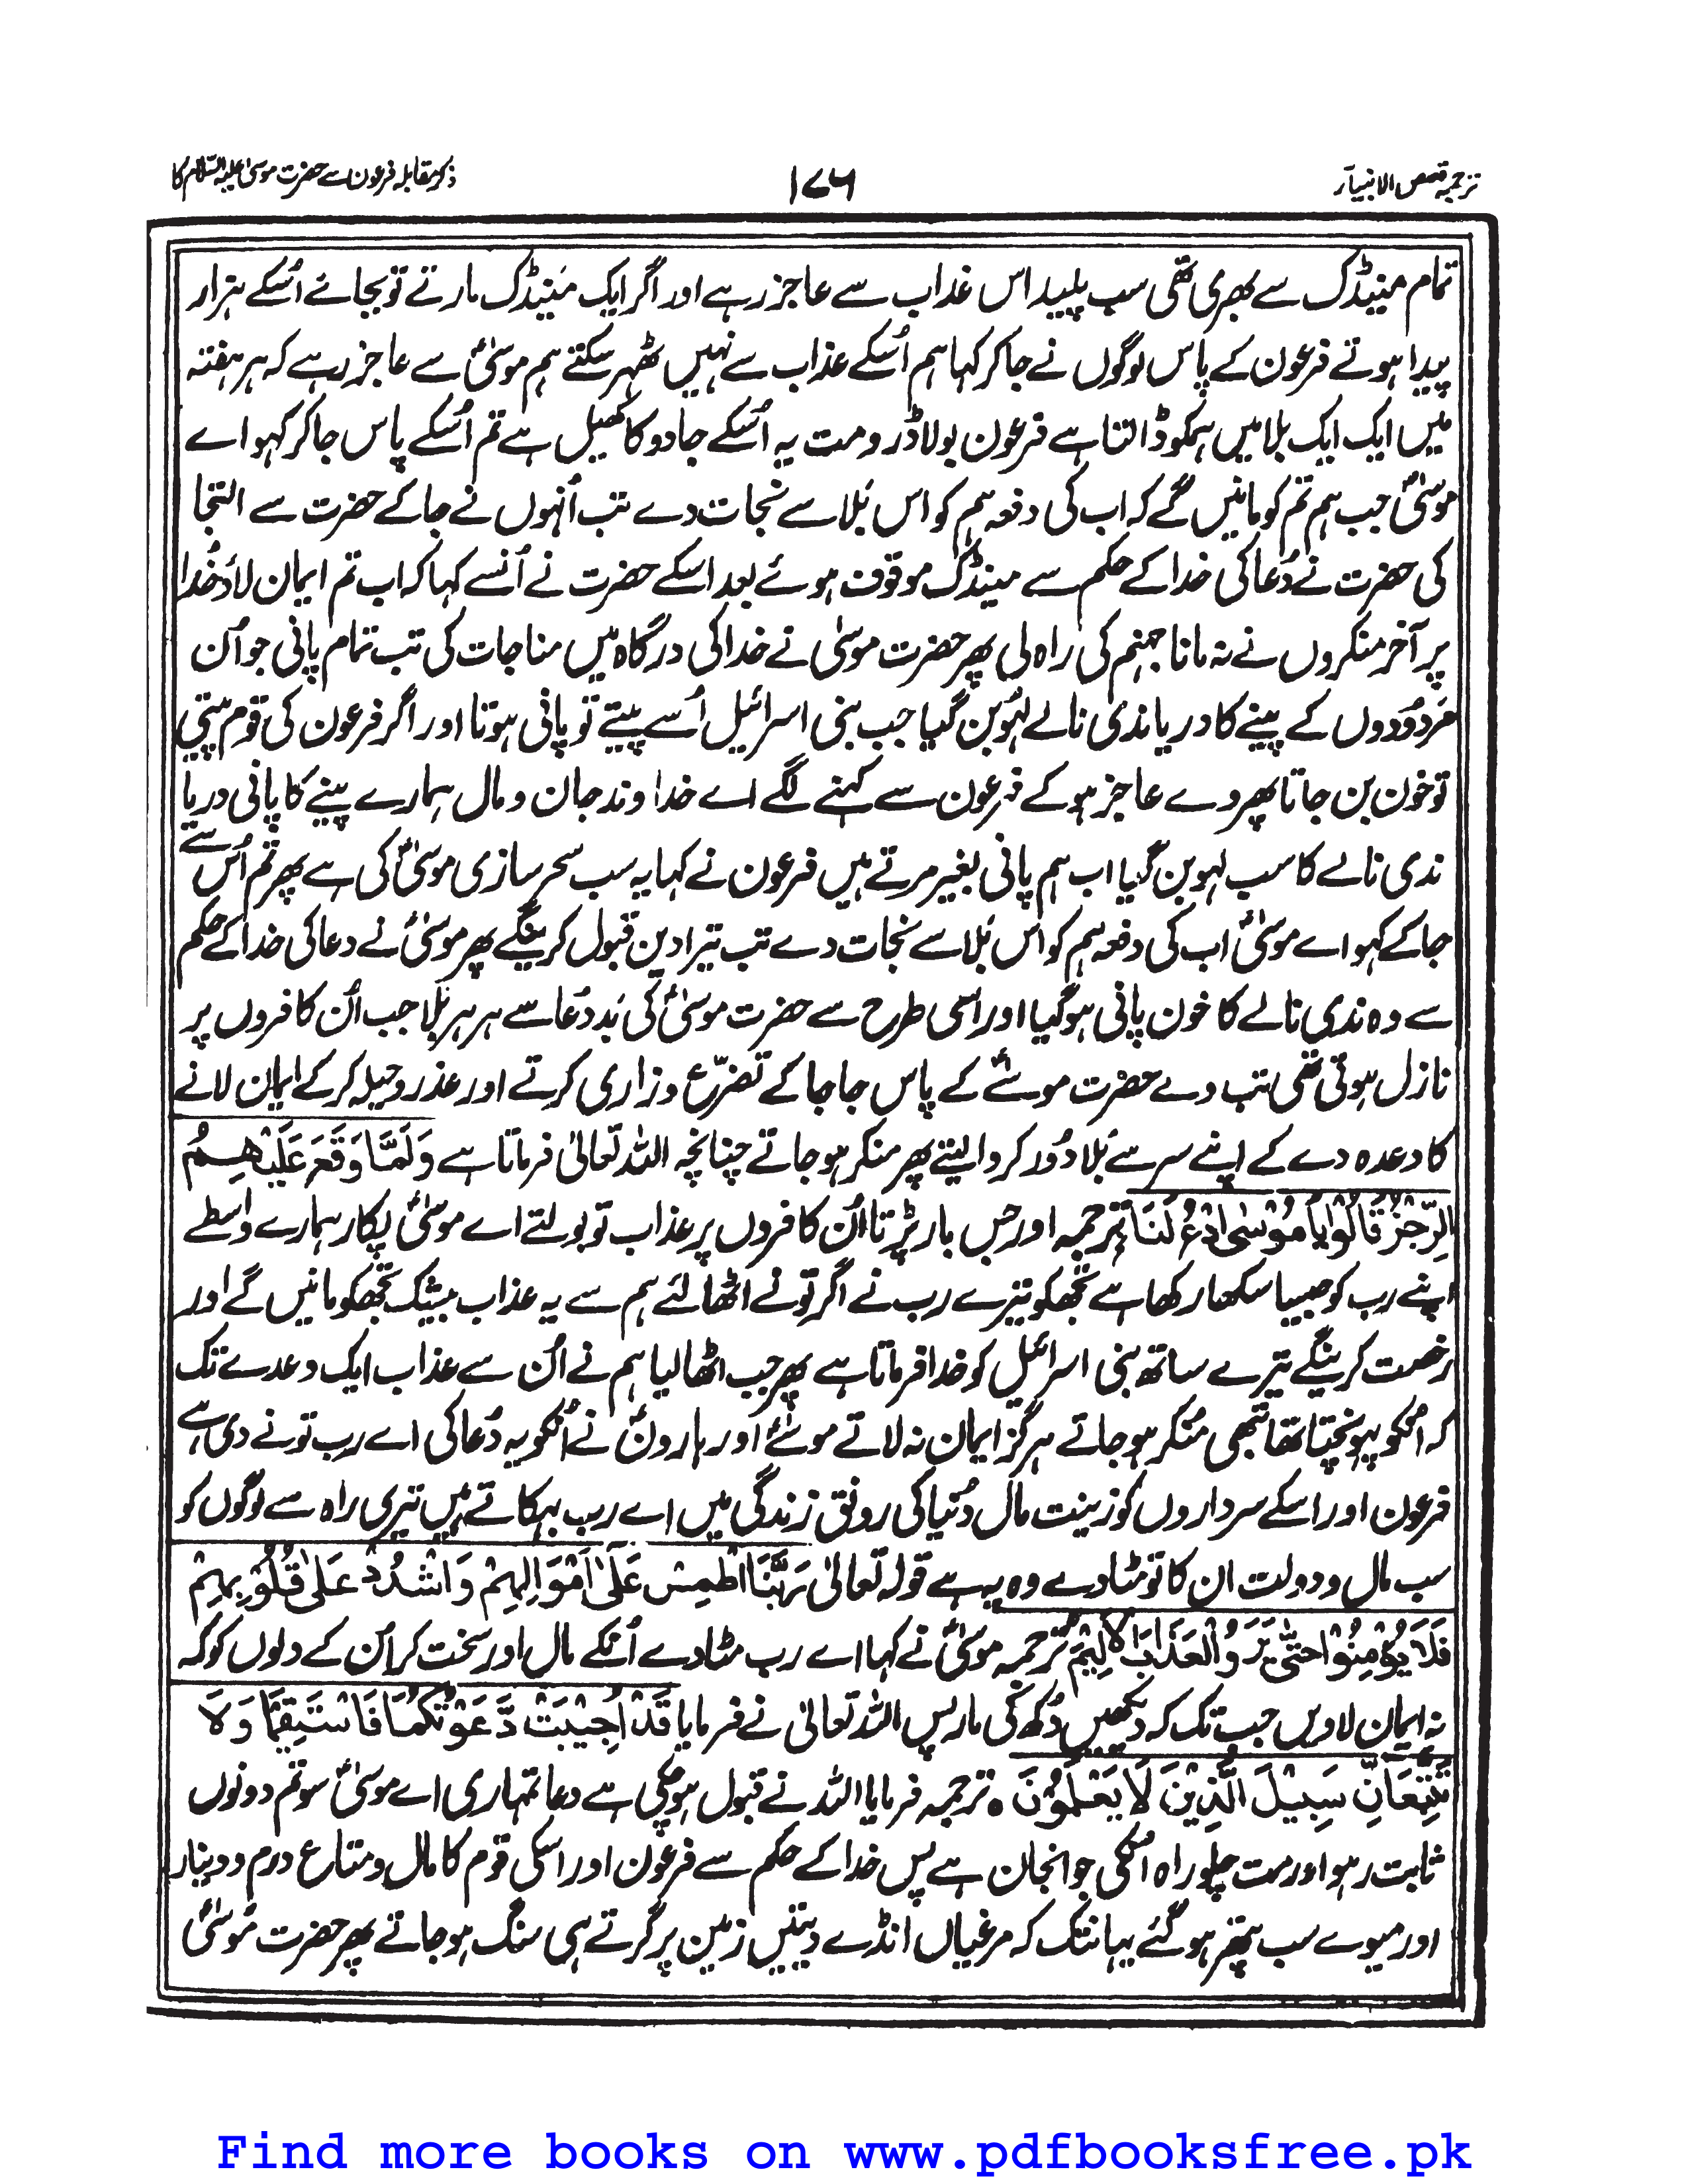 ترجمہ قصص الانبیاء
۱۷۶
ذکر مقابلہ فرعون سے حضرت موسیٰ علیہ السّلام کا
تمام مینڈک سے بھری تھی سب پلید اس عذاب سے عاجز رہے اور اگر ایک مینڈک مارتے تو بجائے اُسکے ہزار
پیدا ہوتے فرعون کے پاس لوگوں نے جا کر کہا ہم اُسکے عذاب سے نہیں ٹھہر سکتے ہم موسیٰؑ سے عاجز رہے کہ ہر ہفتہ
میں ایک ایک بلا میں ہمکو ڈالتا ہے فرعون بولا ڈرو مت یہ اُسکے جادو کا کھیل ہے تم اُسکے پاس جا کر کہو اے
موسیٰؑ جب ہم تم کو مانیں گے کہ اب کی دفعہ ہم کو اس بَلا سے نجات دے تب اُنہوں نے جا کے حضرت سے التجا
کی حضرت نے دُعا کی خدا کے حکم سے مینڈک موقوف ہوئے بعد اسکے حضرت نے اُنسے کہا کہ اب تم ایمان لاؤ خُدا
پر آخر منکروں نے نہ مانا جہنم کی راہ لی پھر حضرت موسیٰ نے خدا کی درگاہ میں مناجات کی تب تمام پانی جو اُن
مَردُودوں کے پینے کا دریا ندی نالے لہُو بن گیا جب بنی اسرائیل اُسے پیتے تو پانی ہوتا اور اگر فرعون کی قوم پیتی
تو خون بن جاتا پھر وے عاجز ہو کے فرعون سے کہنے لگے اے خداوند جان و مال ہمارے پینے کا پانی دریا
ندی نالے کا سب لہو بن گیا اب ہم پانی بغیر مرتے ہیں فرعون نے کہا یہ سب سحر سازی موسیٰؑ کی ہے پھر تم اُس سے
جا کے کہو اے موسیٰؑ اب کی دفعہ ہم کو اس بَلا سے نجات دے تب تیرا دین قبول کرینگے پھر موسیٰؑ نے دعا کی خدا کے حکم
سے وہ ندی نالے کا خون پانی ہو گیا اور اسی طرح سے حضرت موسیٰؑ کی بَد دُعا سے ہر ہر بَلا جب اُن کافروں پر
نازل ہوئی تھی تب وے حضرت موسیٰؑ کے پاس جا جا کے تضرّع وزاری کرتے اور عذر و حیلہ کر کے ایمان لانے
کا وعدہ دے کے اپنے سر سے بَلا دُور کروا لیتے پھر منکر ہو جاتے چنانچہ اللہ تعالیٰ فرماتا ہے وَلَمَّا وَقَعَ عَلَيْهِمُ
الرِّجْزُ قَالُوْا يَا مُوْسَى ادْعُ لَنَا ترجمہ اور جس بار پڑتا اُن کافروں پر عذاب تو بولتے اے موسیٰؑ پکار ہمارے واسطے
اپنے رب کو جیسا سکھا رکھا ہے تجھکو تیرے رب نے اگر تُو نے اٹھا لئے ہم سے یہ عذاب بیشک تجھکو مانیں گے اور
رخصت کرینگے تیرے ساتھ بنی اسرائیل کو خدا فرماتا ہے پھر جب اٹھا لیا ہم نے اُن سے عذاب ایک وعدے تک
کہ اُنکو پہونچتا تھا تبھی مُنکر ہو جاتے ہرگز ایمان نہ لاتے موسیٰؑ اور ہارونؑ نے اُنکو یہ دُعا کی اے رب تو نے دی ہے
فرعون اور اسکے سرداروں کو زینت مال دُنیا کی رونق زندگی میں اے رب بہکاتے ہیں تیری راہ سے لوگوں کو
سب مال و دولت ان کا تو مٹا دے وہ یہ ہے قولہ تعالیٰ رَبَّنَا اطْمِسْ عَلٰٓى اَمْوَالِهِمْ وَاشْدُدْ عَلٰى قُلُوْبِهِمْ
فَلَا يُؤْمِنُوْا حَتّٰى يَرَوُا الْعَذَابَ الْاَلِيْمَ ترجمہ موسیٰؑ نے کہا اے رب مٹا دے اُنکے مال اور سخت کر اُن کے دلوں کو کہ
نہ ایمان لاویں جب تک کہ دیکھیں دُکھ کی مار پس اللہ تعالیٰ نے فرمایا قَدْ اُجِيْبَتْ دَّعْوَتُكُمَا فَاسْتَقِيْمَا وَلَا
تَتَّبِعَانِّ سَبِيْلَ الَّذِيْنَ لَا يَعْلَمُوْنَ ۰ ترجمہ فرمایا اللہ نے قبول ہو چکی ہے دعا تمہاری اے موسیٰؑ سو تم دونوں
ثابت رہو اور مت چلو راہ اُنکی جو انجان ہے پس خدا کے حکم سے فرعون اور اسکی قوم کا مال و متاع درم و دینار
اور میوے سب پتھر ہو گئے یہانتک کہ مرغیاں انڈے دیتیں زمین پر گرتے ہی سنگ ہو جاتے پھر حضرت موسیٰؑ
Find more books on www.pdfbooksfree.pk